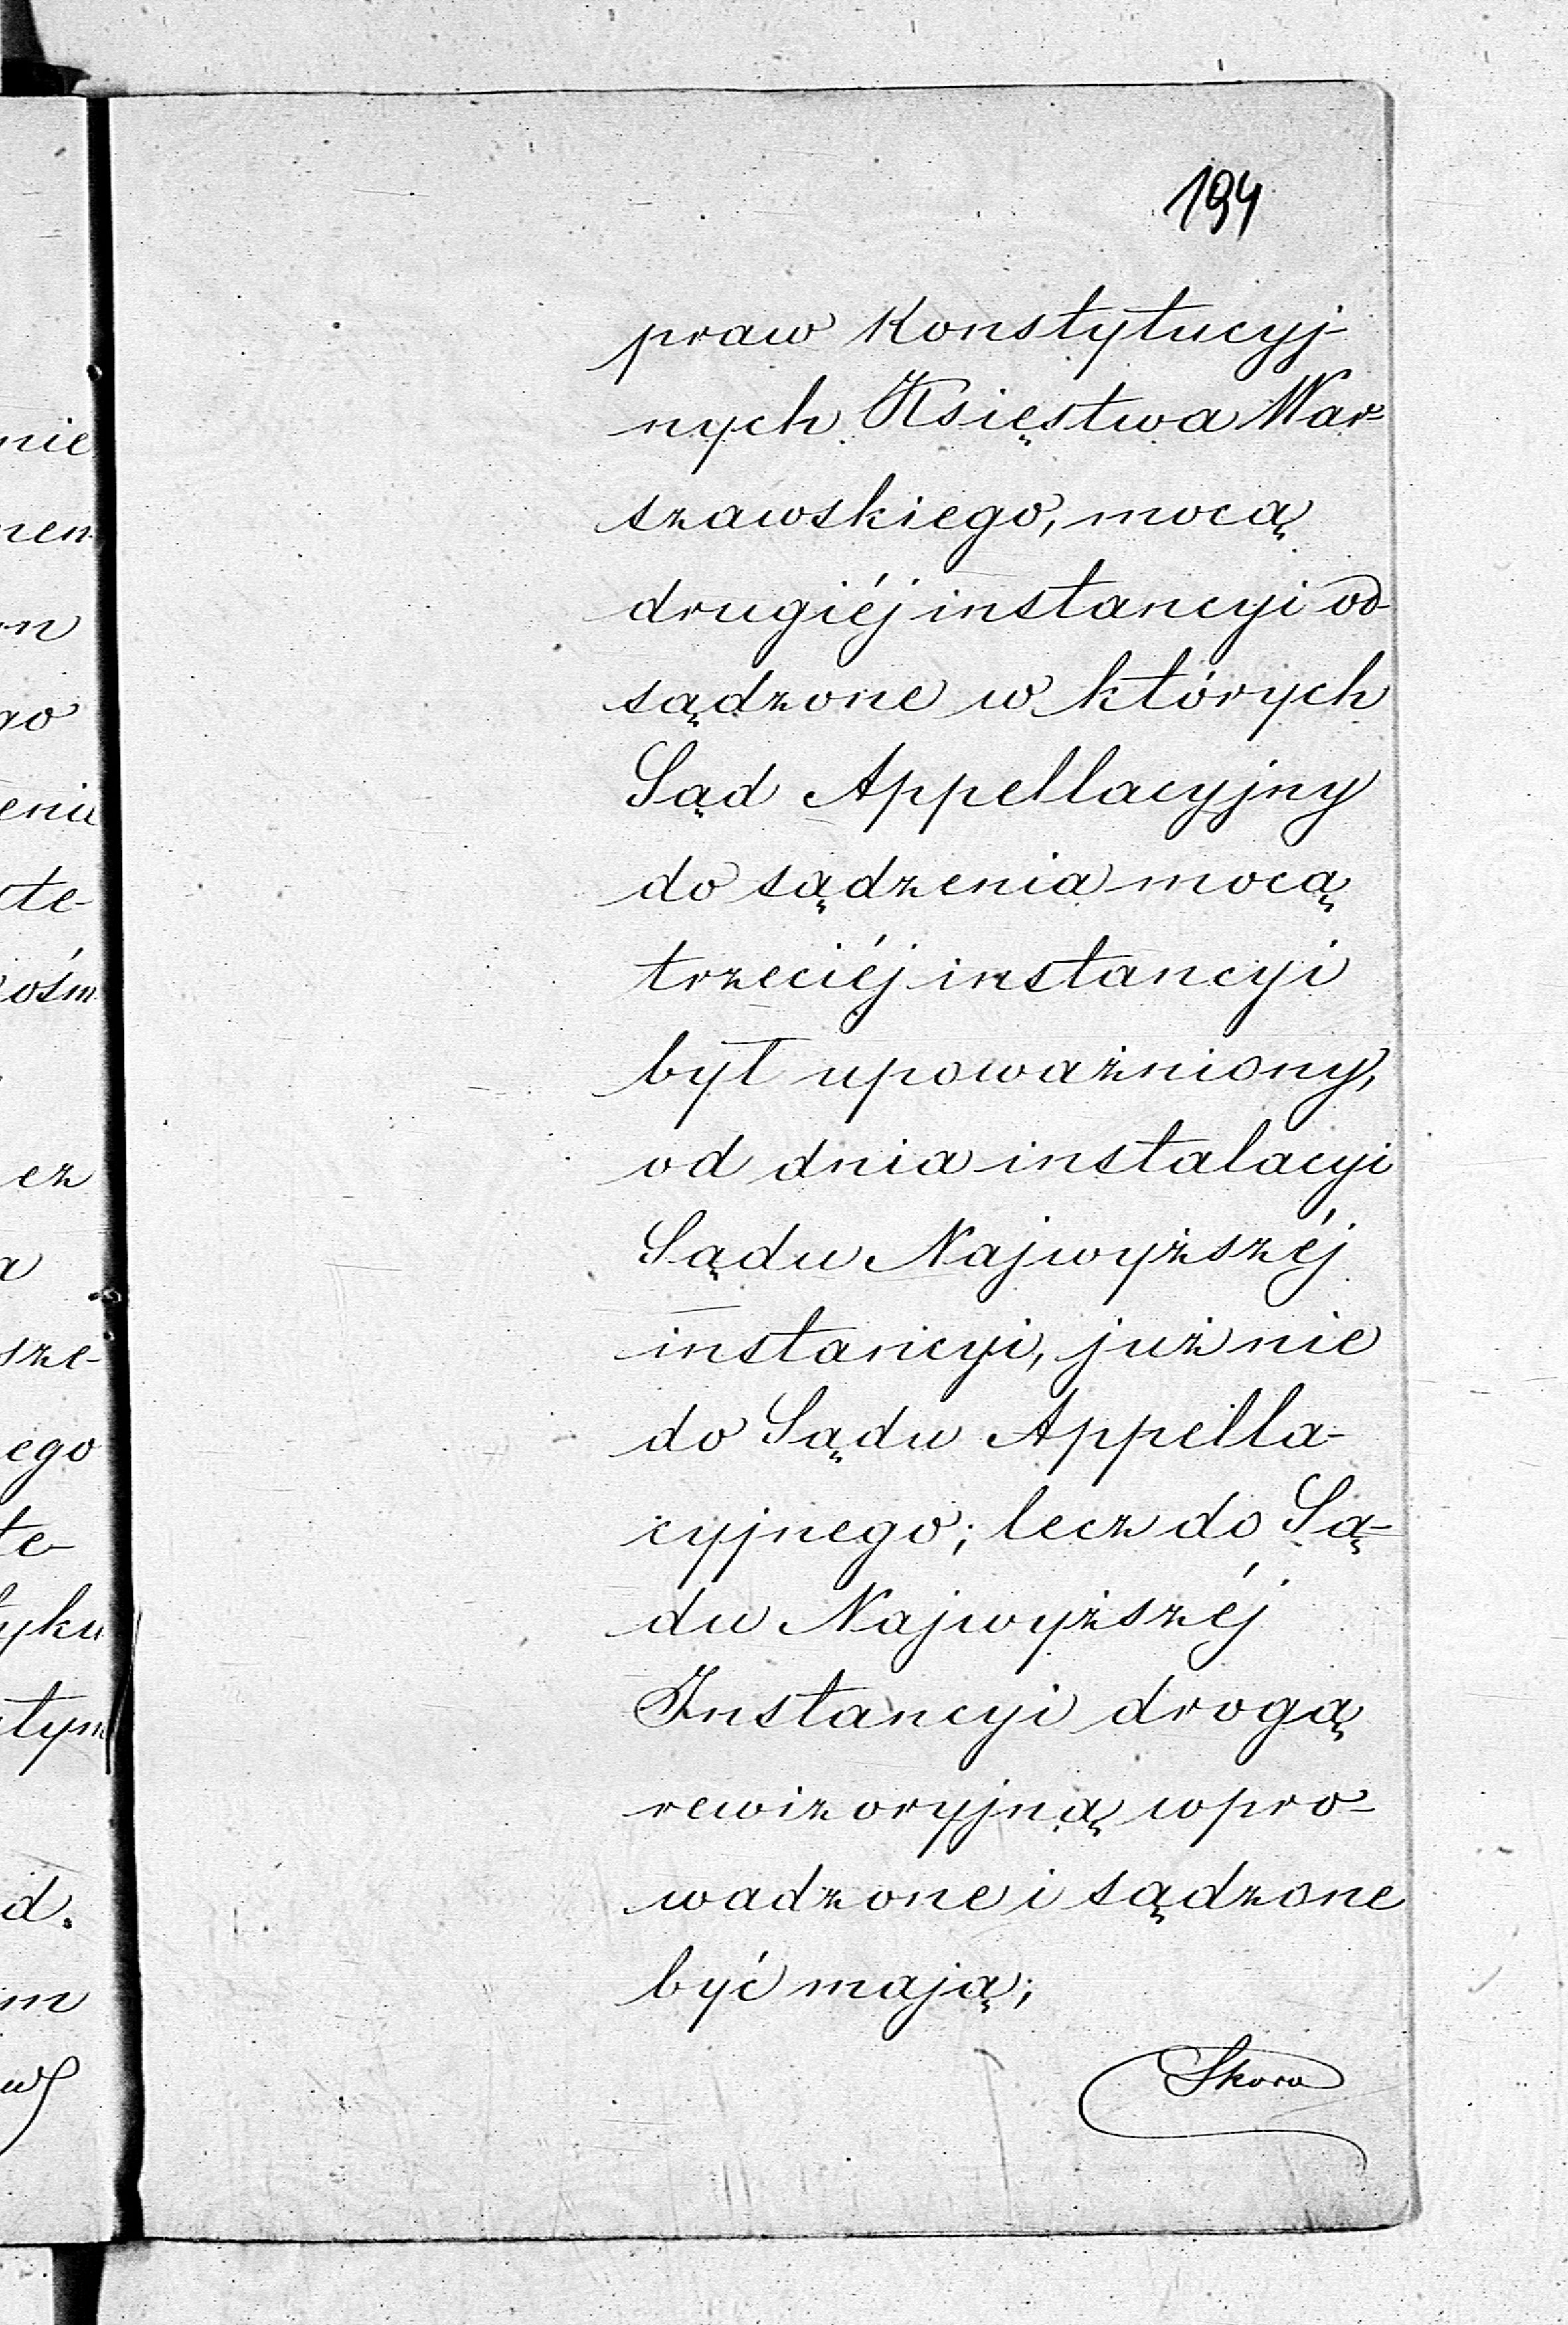 194
praw Konstytucyj-
nych Księstwa War-
szawskiego, mocą
drugiéj instancyi od-
sądzone w których
Sąd Appellacyjny
do sądzenia mocą
trzeciéj instancyi
był upoważniony,
od dnia instalacyi
Sądu Najwyższéj
instancyi, już nie
do Sądu Appella-
cyjnego; lecz do Są-
du Najwyższéj
Instancyi drogą
rewizoryjną wpro-
wadzone i sądzone
być mają;
Skora